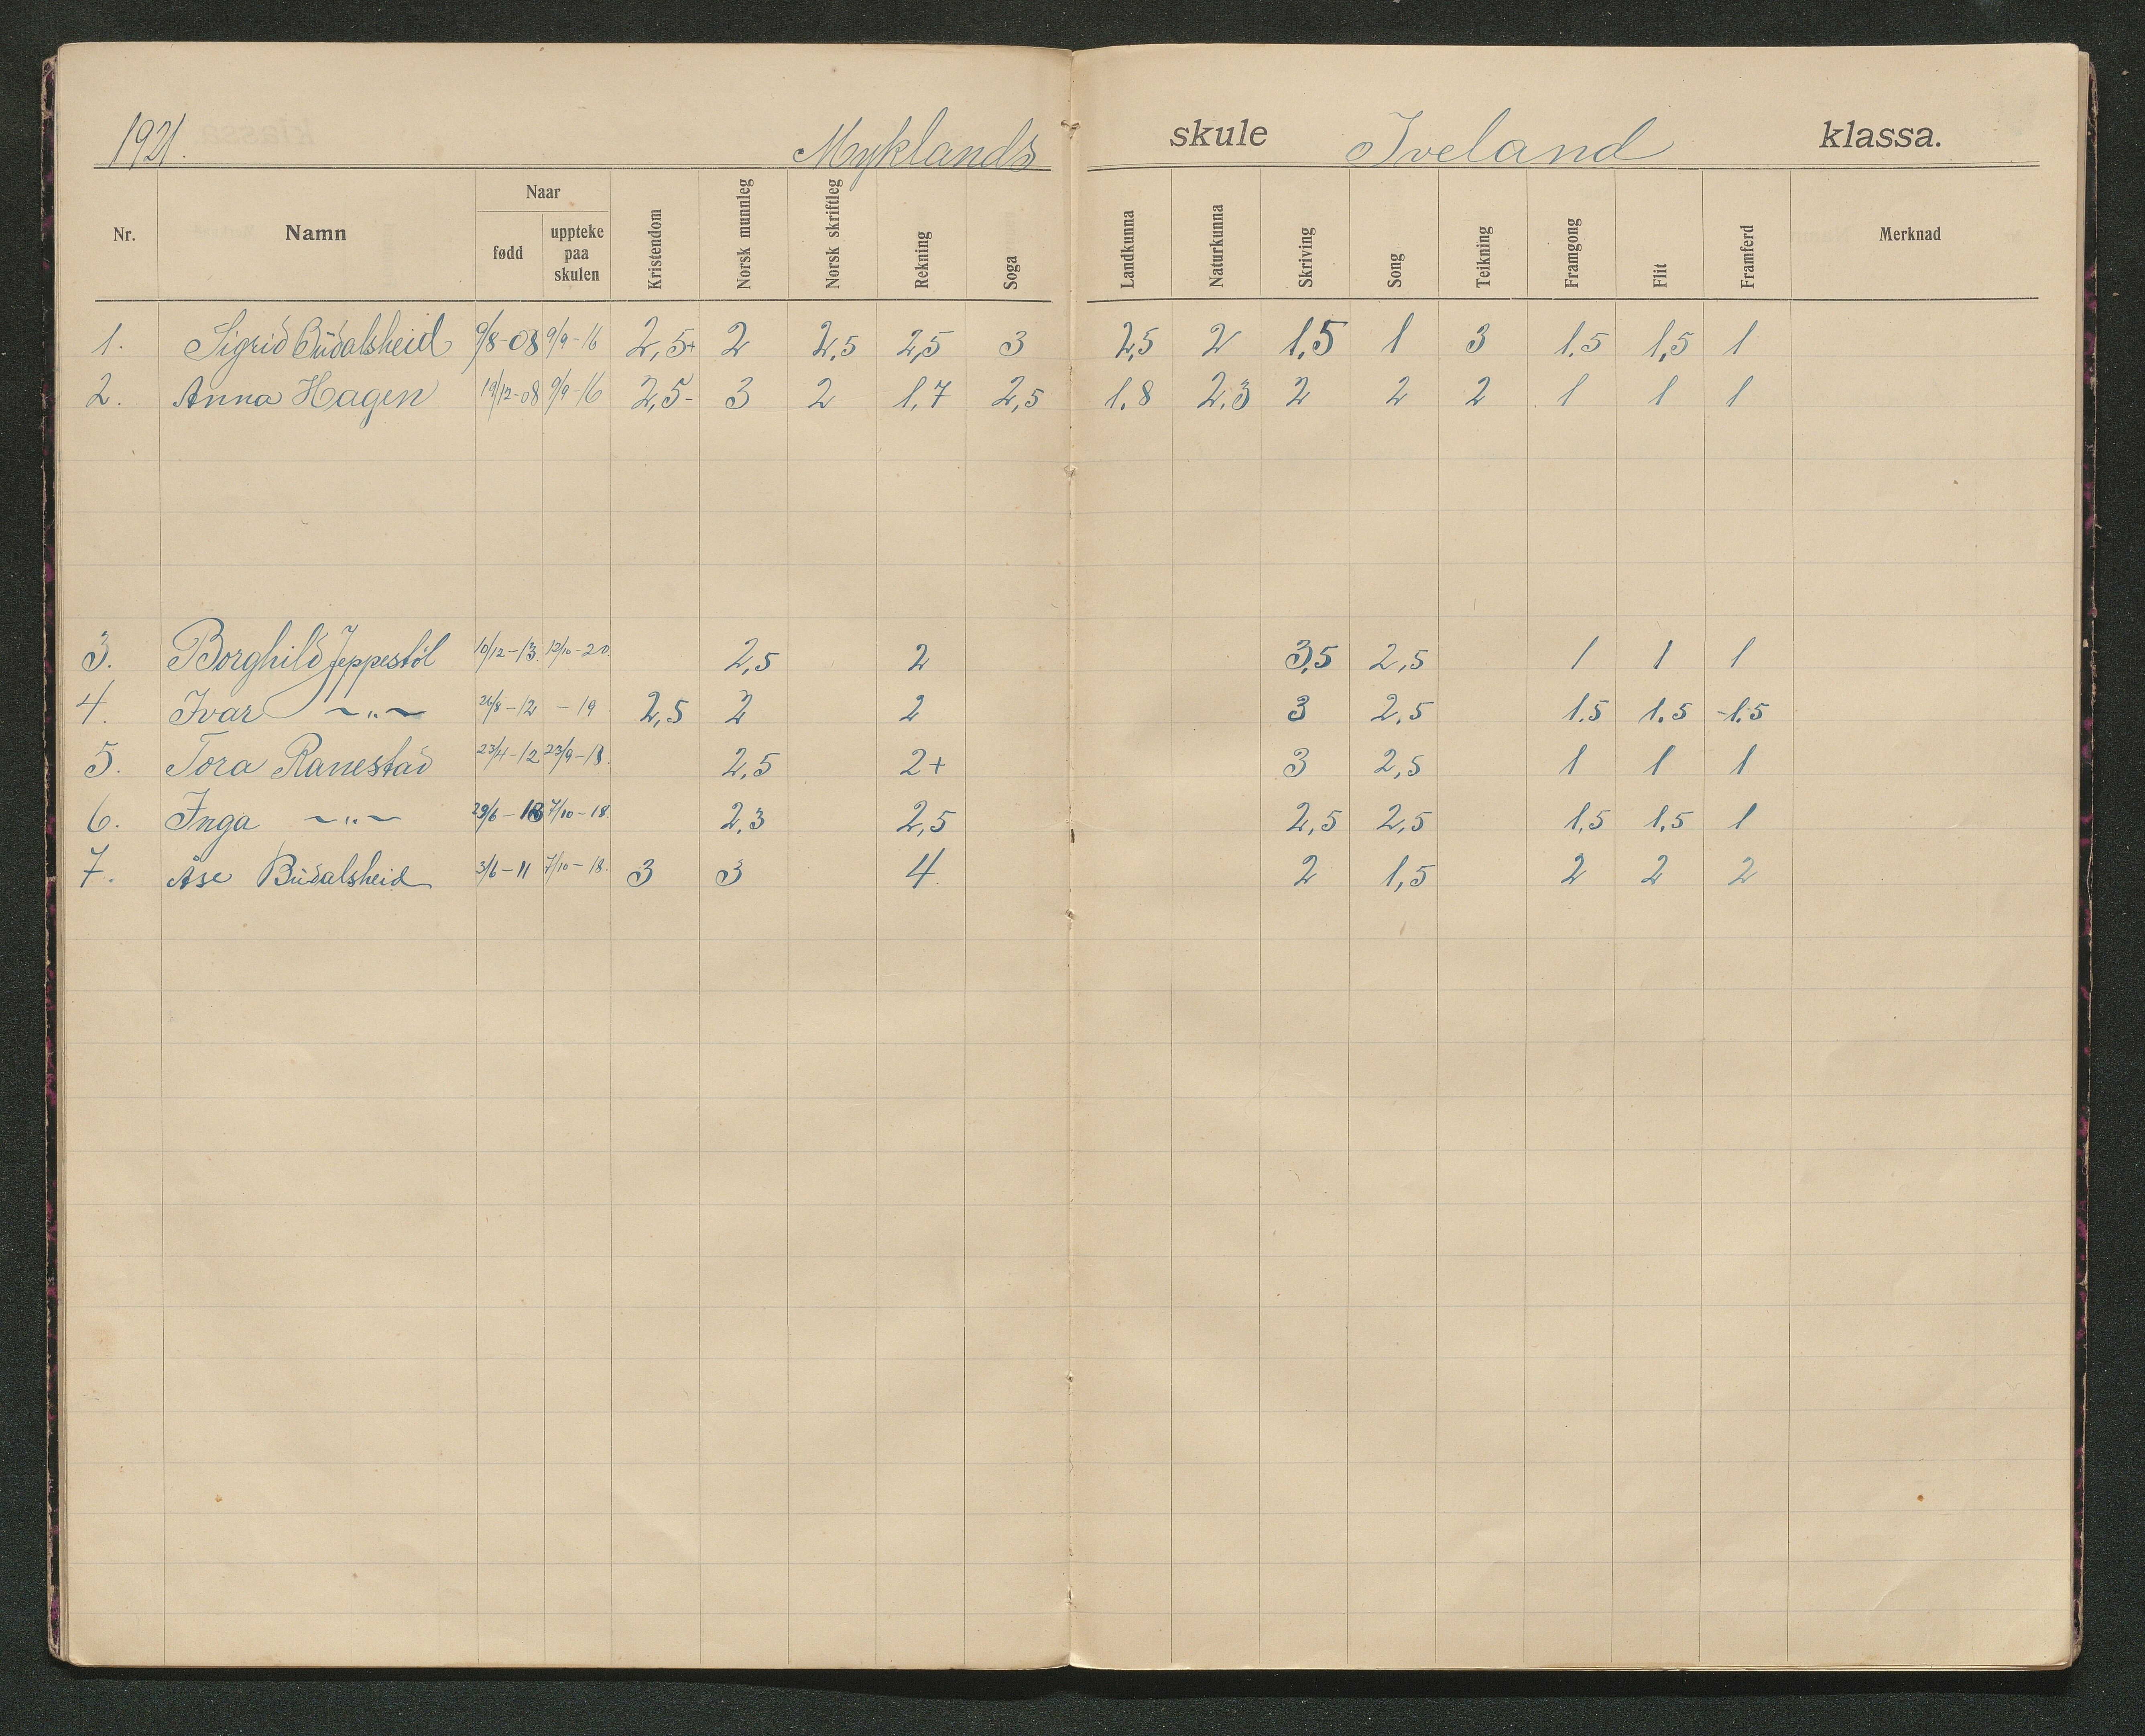 1921. Myklands skule Iveland klassa.
Nr. Namn Naar fødd uppteke paa skulen Kristendom Norsk munnleg Norsk skriftleg Rekning Soga Landkunna Naturkunna Skriving Song Teikning Framgong Flit Framferd Merknad
1. Sigrid Budalsheid 9/8-08 9/9-16 2,5+ 2 2,5 2,5 3 2,5 2 1,5 1 3 1.5 1,5 1
2. Anna Hagen 19/12-08 9/9-16 2,5- 3 2 1.7 2,5 1.8 2.3 2 2 2 1 1 1
3. Borghild Jeppestöl 10/12-13. 12/10-20. 2,5 2 3,5 2,5 1 1 1
4. Ivar -"- 26/8-12 -19 2,5 2 2 3 2,5 1.5 1.5 1.5
5. Tora Ranestad 23/4-12 23/9-18. 2,5 2+ 3 2,5 1 1 1
6. Inga -"- 29/6- 7/10-18. 2,3 2,5 2,5 2,5 1,5 1,5 1
7. Åse Budalsheid 3/6-11 7/10-18. 3 3 4. 2 1,5 2 2 2